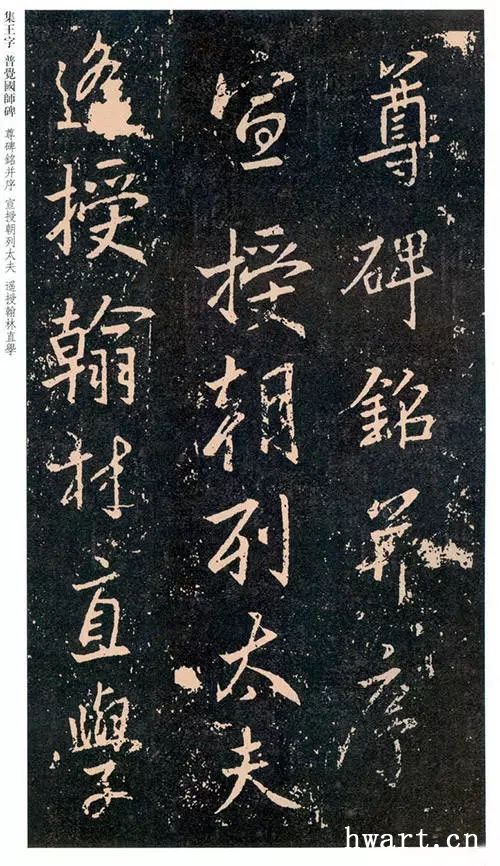 尊碑銘并序
宣授朝列太夫
遥授翰林直學
集王字 普覺國師碑 尊碑銘并序 宣授朝列太夫 遥授翰林直學
hwart.cn